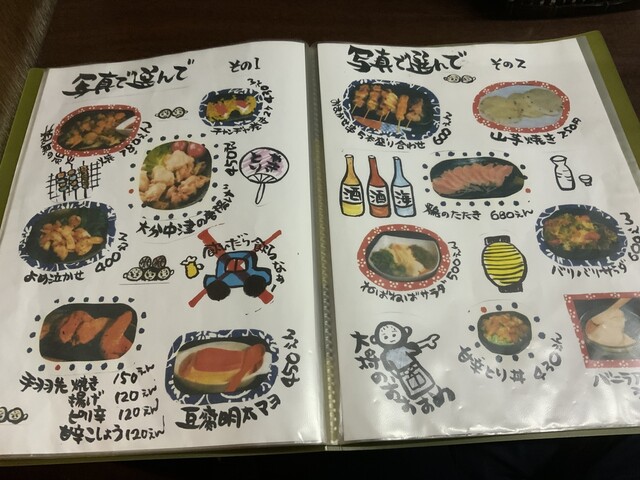 写真で選んで その1
450えん
450えん
大分中津の唐揚げ
よめ泣かせ 400えん
飲んだら飲るなぁ!
手羽先 焼き 150えん
揚げ 120えん
ピリ辛 120えん
甘辛こしょう 120えん
豆腐明太マヨ 450えん
写真で選んで その2
5本盛り合わせ 600えん
山芋焼き 350円
酒 酒 酒
鴨のたたき 680えん
ねばねばサラダ 500えん
バリバリサラダ
大場の
甘辛とり丼 430えん
バニラ